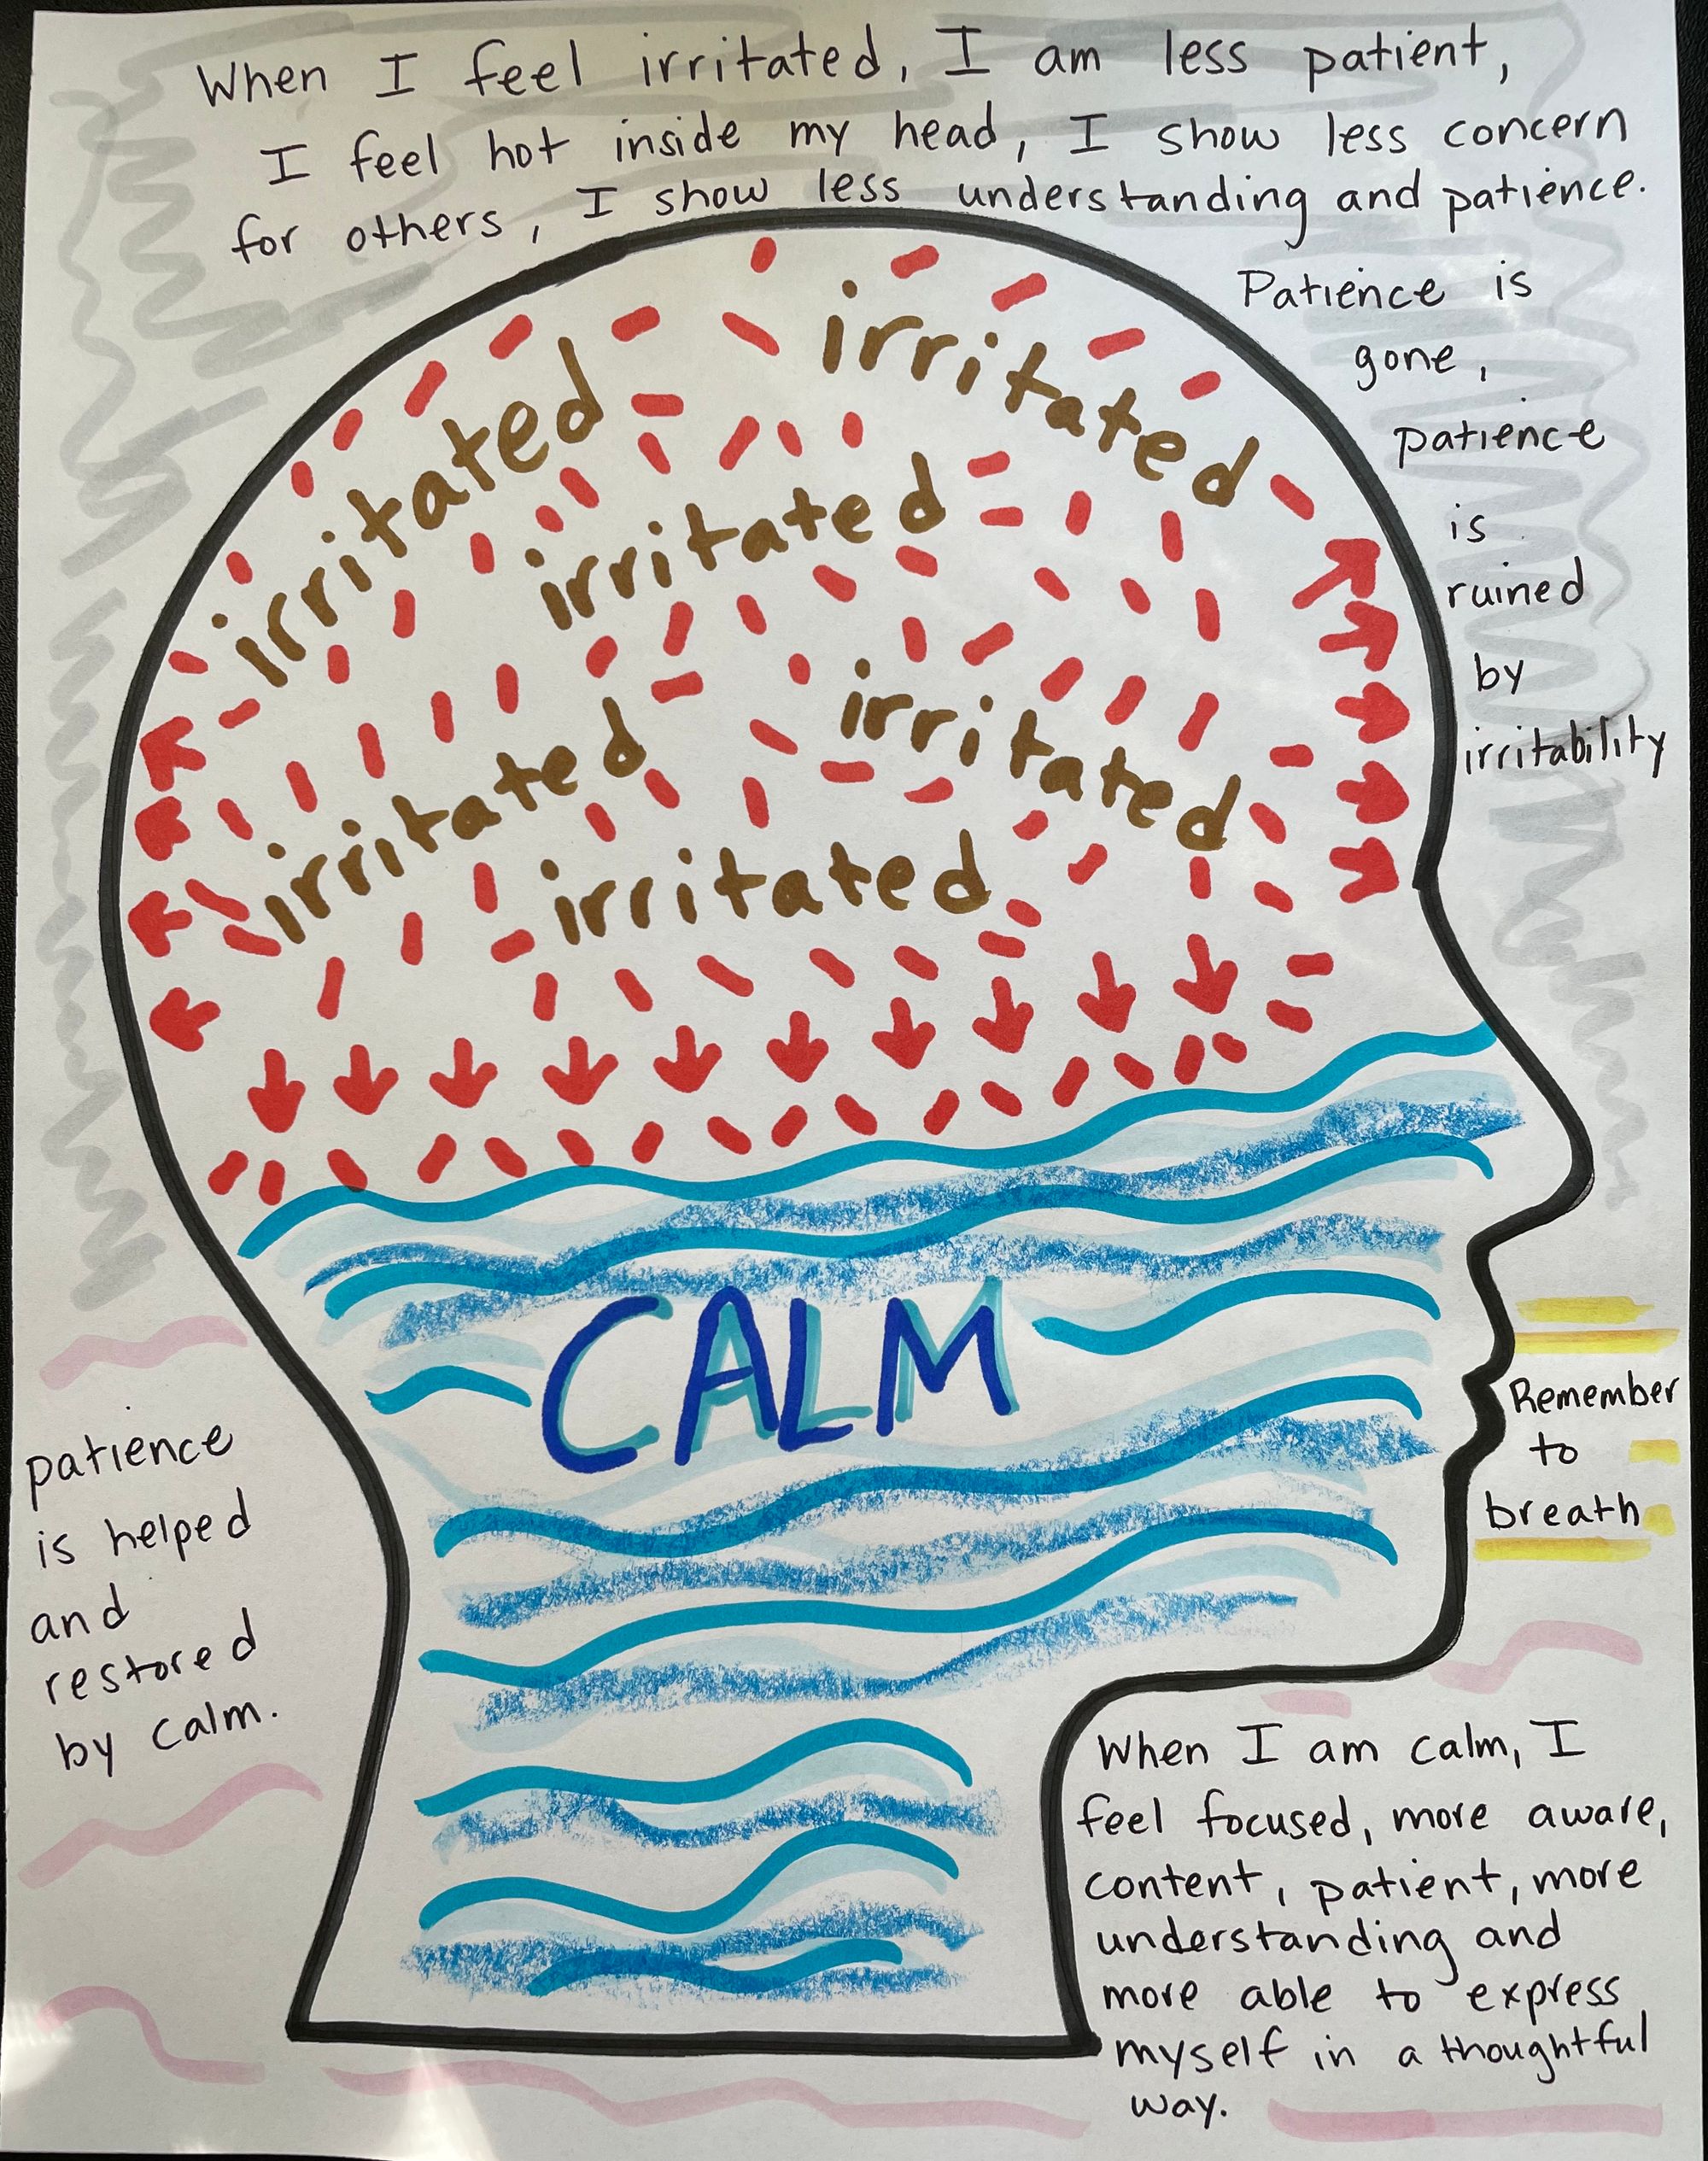 When I feel irritated, I am less patient,
I feel hot inside my head, I show less concern
for others, I show less understanding and patience.
Patience is
gone,
patience
is
ruined
by
irritability
irritated
irritated
irritated
irritated
irritated
irritated
CALM
Remember
to
breath
patience
is helped
and
restored
by calm.
When I am calm, I
feel focused, more aware,
content, patient, more
understanding and
more able to express
myself in a thoughtful
way.